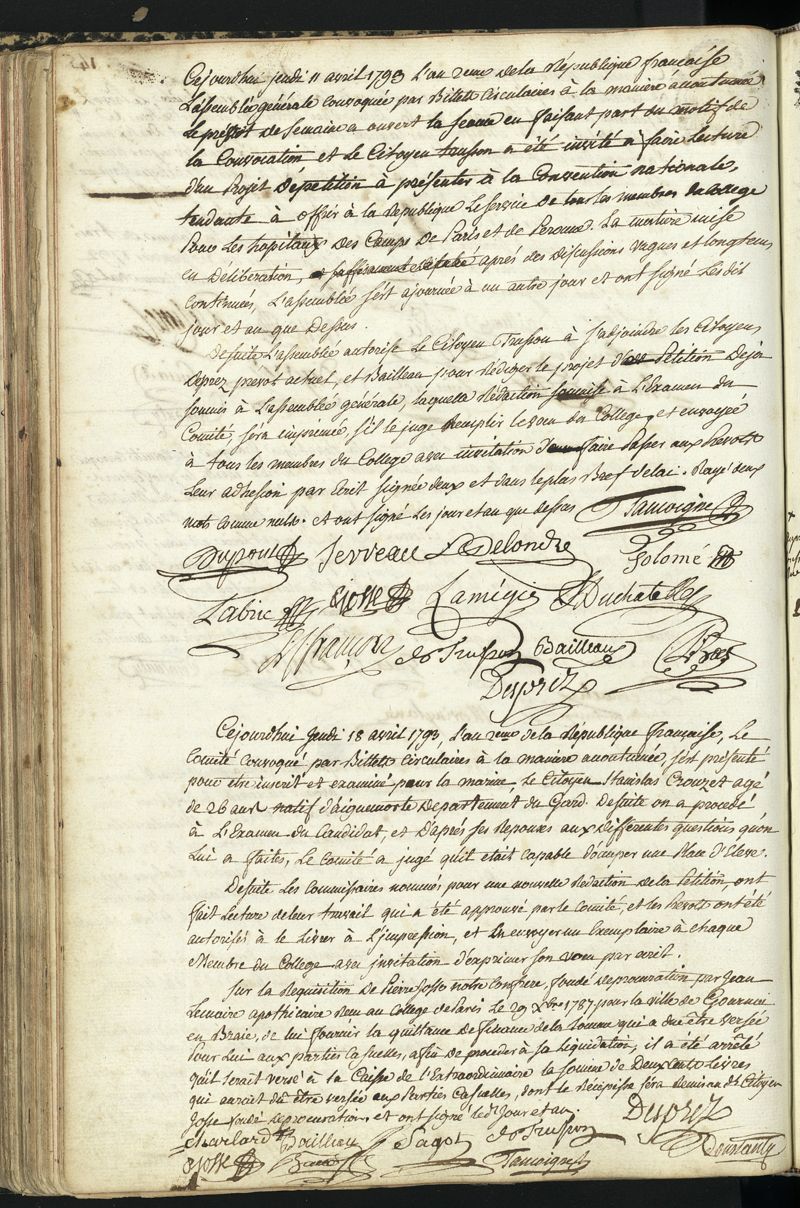 Cejourdhui jeudi 11 avril 1793 L'an 2eme de la République françoise
L'assemblée générale convoquée par Billets circulaires à la manière accoutumée
Le prévôt de Semaine a ouvert la séance en faisant part du motif de
la Convocation et Le Citoyen trusson a été invité à faire Lecture
d'un Projet de petition à présenter à la Convention nationale,
tendante à offrir à la Republique Le service de tous les membres du College
Pour Les hopitaux des Camps de Paris et de Peronne. La matiere mise
en deliberation, après des discussions vagues et longtems
continuées, L'assemblée s'est ajournée à un autre jour et ont signé Les dits
jour et an que dessus.
De suite L'assemblée autorise Le Citoyen Trusson à s'adjoindre les Citoyens
Deprez prevot actuel, et Bailleau pour rédiger le projet de Petition Deja
soumis à L'assemblée générale, laquelle rédaction soumise à L'Examen du
Comité, sera imprimée, s'il le juge Remplir le voeu du College, et envoyée
à tous les membres du College avec invitation de faire Passer aux Prevots
Leur adhesion par Ecrit signée deux et dans le plus Bref delai. Rayé deux
mots comme nuls. et ont signé Les jour et an que dessus Tamoigne
Dupont Serveau Delondre Solomé
Labric Gosse Lamégie Duchatelle
De Trusson Bailleau
Desprez
Cejourdhui Jeudi 18 avril 1793, L'an 2eme de la République françoise, Le
Comité convoqué par Billets circulaires à la manière accoutumée, s'est présenté
pour être inscrit et examiné pour la marine Le Citoyen Stanislas Crouzet agé
de 26 ans natif d'aiguemorte Departement du Gard. De suite on a procedé
à L'Examen du Candidat, et d'après ses Reponses aux differentes questions qu'on
Lui a faites, Le Comité a jugé qu'il etait capable d'occuper une Place d'Eleve.
De suite Les Commissaires nommés pour une nouvelle Redaction de la Petition, ont
fait Lecture de leur travail qui a été approuvé par le Comité, et les Prevots ont été
autorisés à le Livrer à L'impression, et En envoyer un Exemplaire à chaque
Membre du College avec invitation d'exprimer son voeu par écrit.
Sur la Requisition de Pierre Josse notre Confrere, fondé de procuration par Jean
Lemaire apothicaire reçu au College de Paris Le 29 Xbre 1787 pour la ville de Gournai
en Braie, de lui fournir la quittance de finance de la somme qui a due être versée
Pour Lui aux parties casuelles, afin de proceder à sa liquidation, il a été arrêté
qu'il serait versé à la Caisse de l'Extraordinaire la somme de Deux cents Livres
qui auroit dû être versée aux Parties Casuelles, dont le Récépissé sera remis au dt Citoyen
Josse fondé de procuration et ont signé led. Jour et an. Desprez
Charlard Bailleau Sagot De Trusson
Gosse Tamoigne